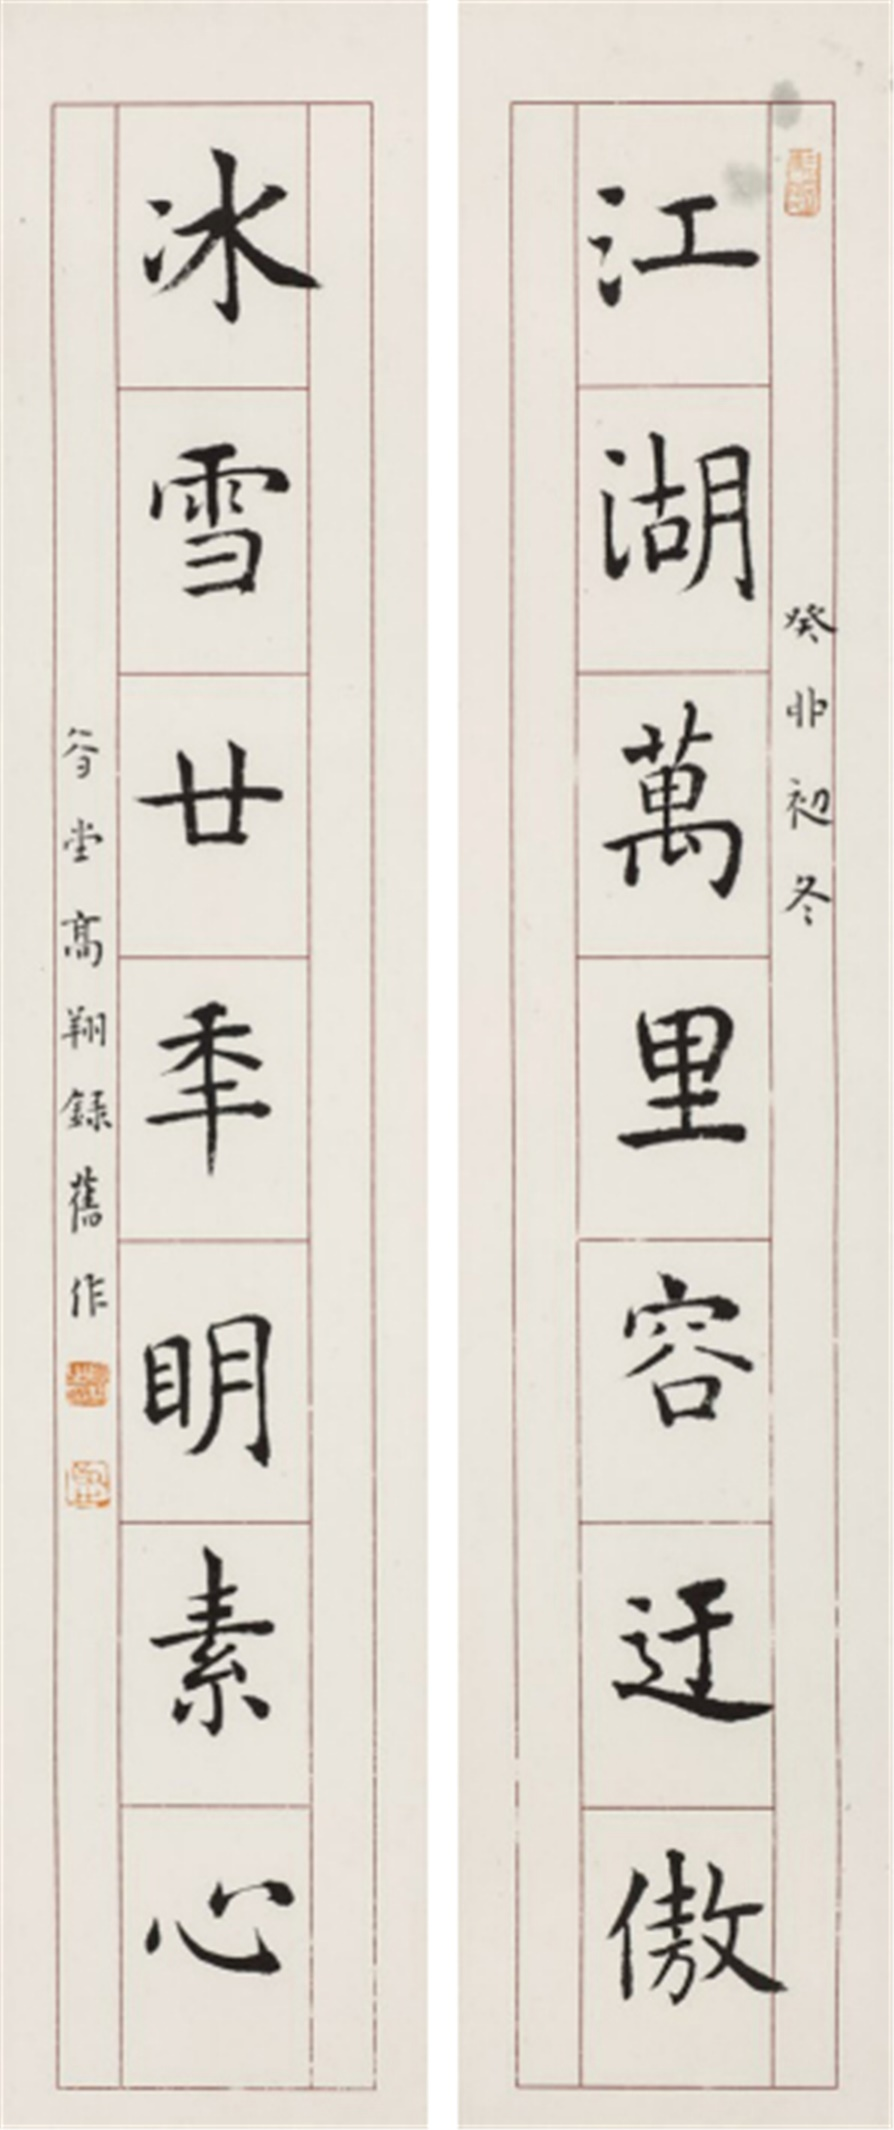 癸卯初冬
江湖萬里容迂傲
冰雪廿年明素心
谷堂高翔録舊作